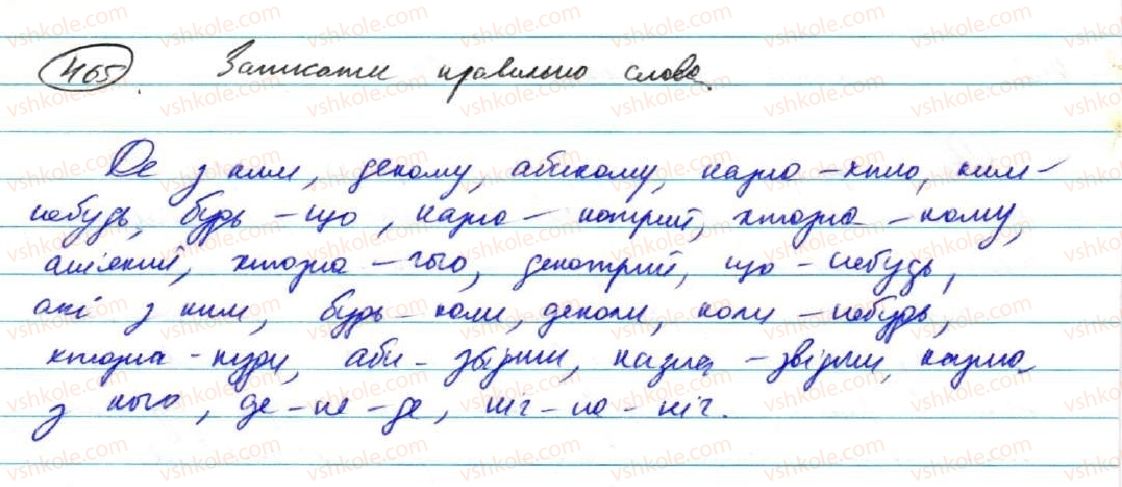 465. Записати правильно слова.
Де з ким, декому, абикому, казна-хто, ким-
небудь, будь-що, казна-котрий, хтозна-кому,
абиякий, хтозна-чого, декотрий, що-небудь,
ані з ким, будь-коли, деколи, коли-небудь,
хтозна-куди, аби-звідки, казна-звідки, казна
з кого, де-не-де, ніч-по-ніч.